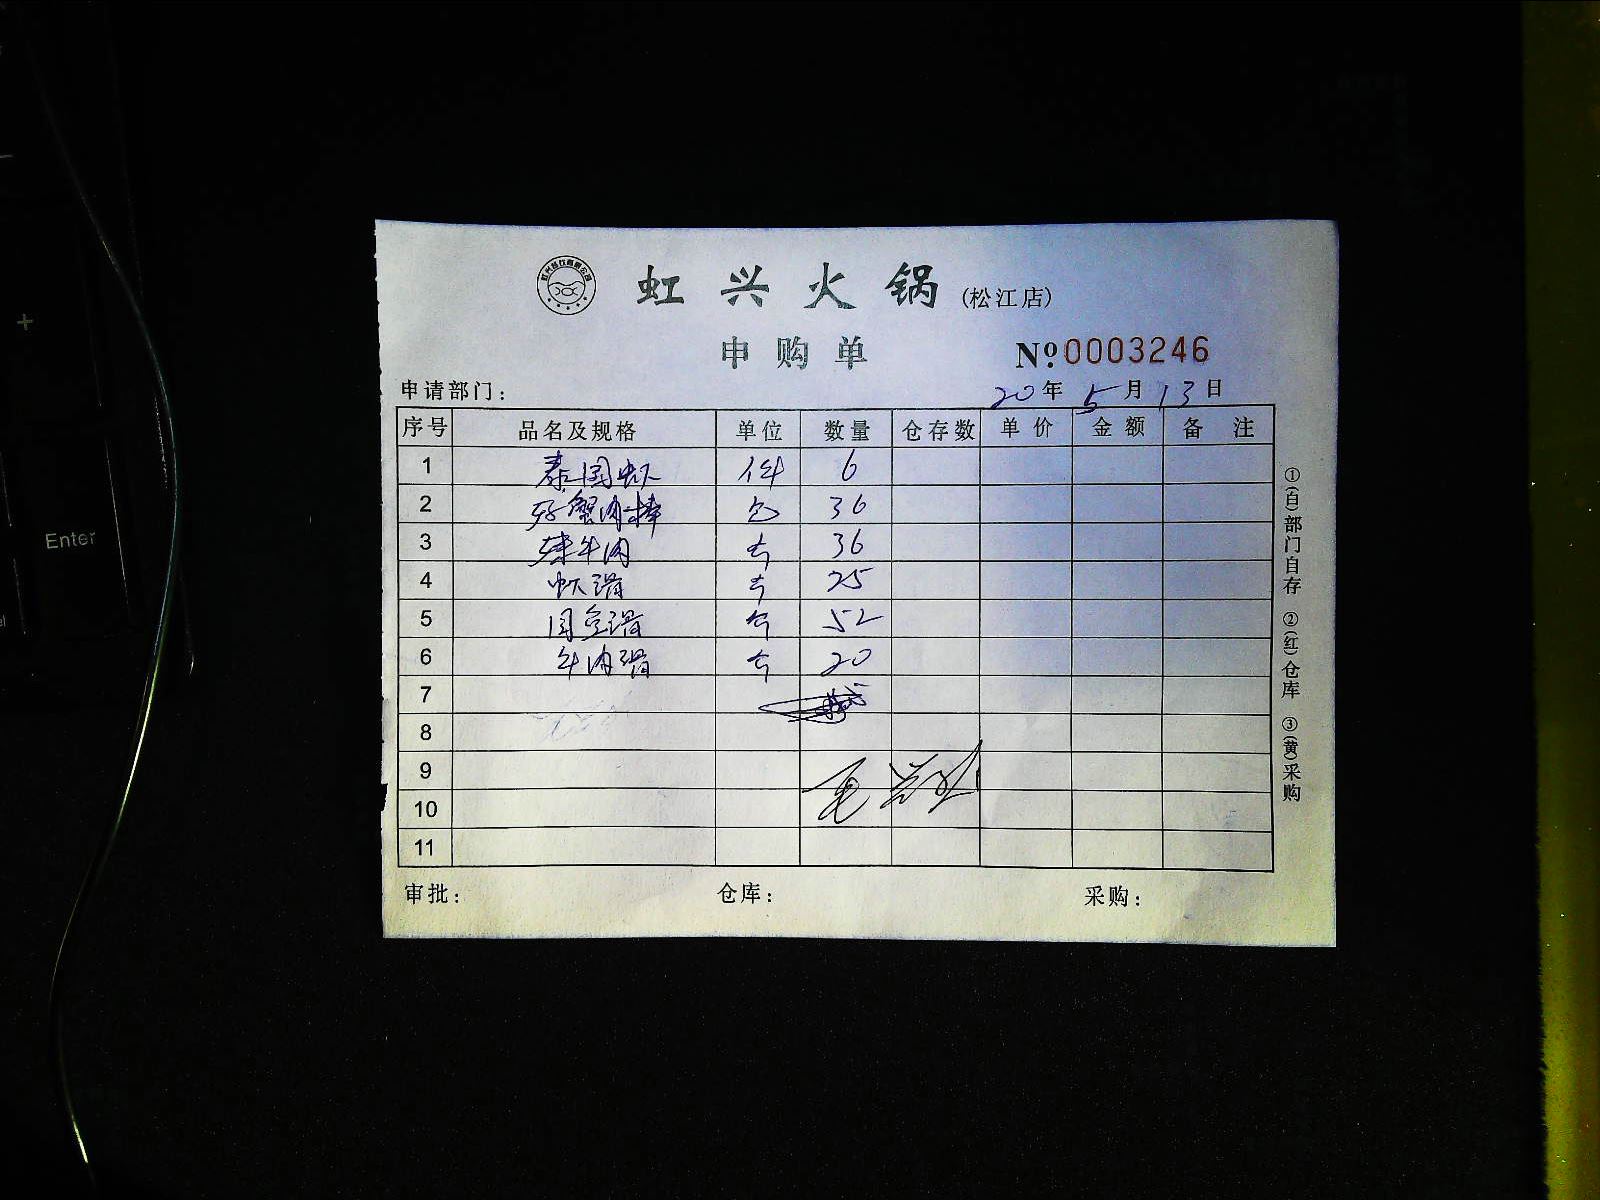 虹兴火锅 (松江店)
申购单 No.0003246
申请部门: 20年 5月 13日
序号 品名及规格 单位 数量 仓存数 单价 金额 备注
1 泰国虾 件 6
2 蟹肉棒 包 36
3 牛肉 36
4 虾滑 25
5 滑 52
6 牛肉滑 20
7
8
9
10
11
审批: 仓库: 采购:
①(白)部门自存 ②(红)仓库 ③(黄)采购
+
Enter